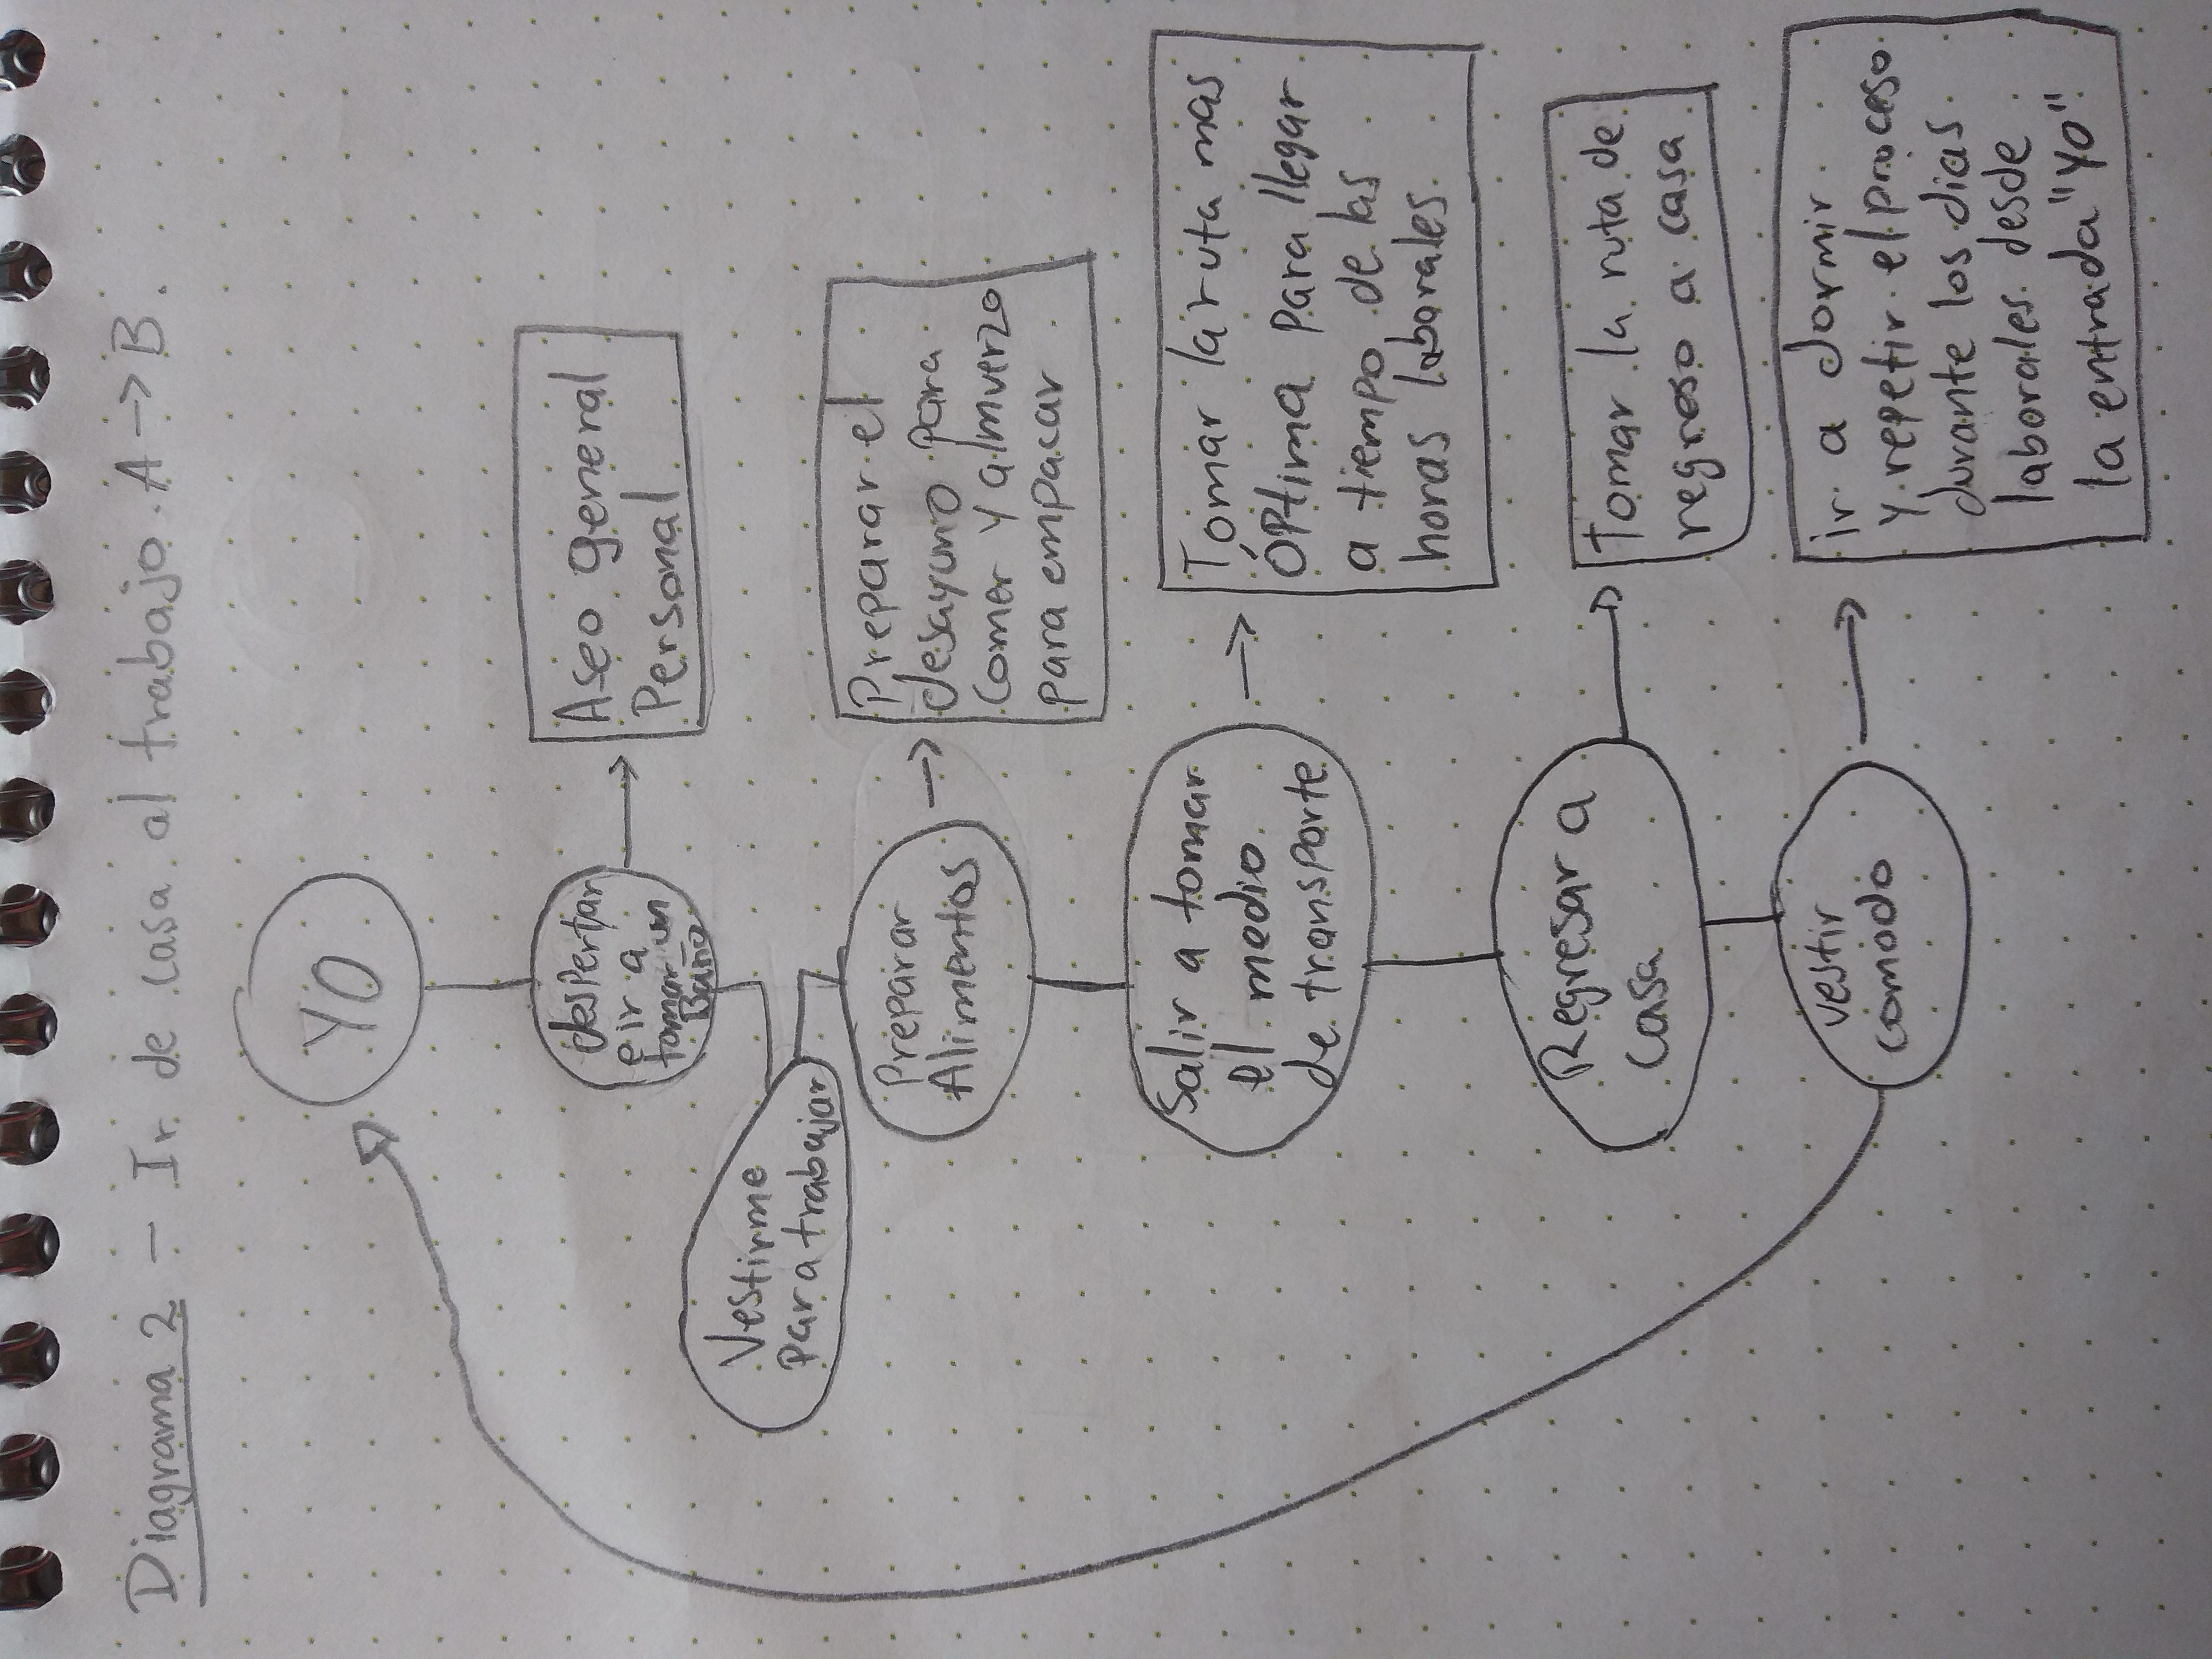 Diagrama 2 - Ir de casa al trabajo. A → B.
YO
despertar
e ir a
tomar un
Baño
Aseo general
Personal
Vestirme
para trabajar
Preparar
Alimentos
Preparar el
desayuno para
comer y almuerzo
para empacar
Salir a tomar
el medio
de transporte
Tomar la ruta mas
Óptima para llegar
a tiempo de las
horas laborales.
Regresar a
casa
Tomar la ruta de
regreso a casa
vestir
comodo
ir a dormir
y repetir el proceso
durante los dias
laborales desde
la entrada "YO"